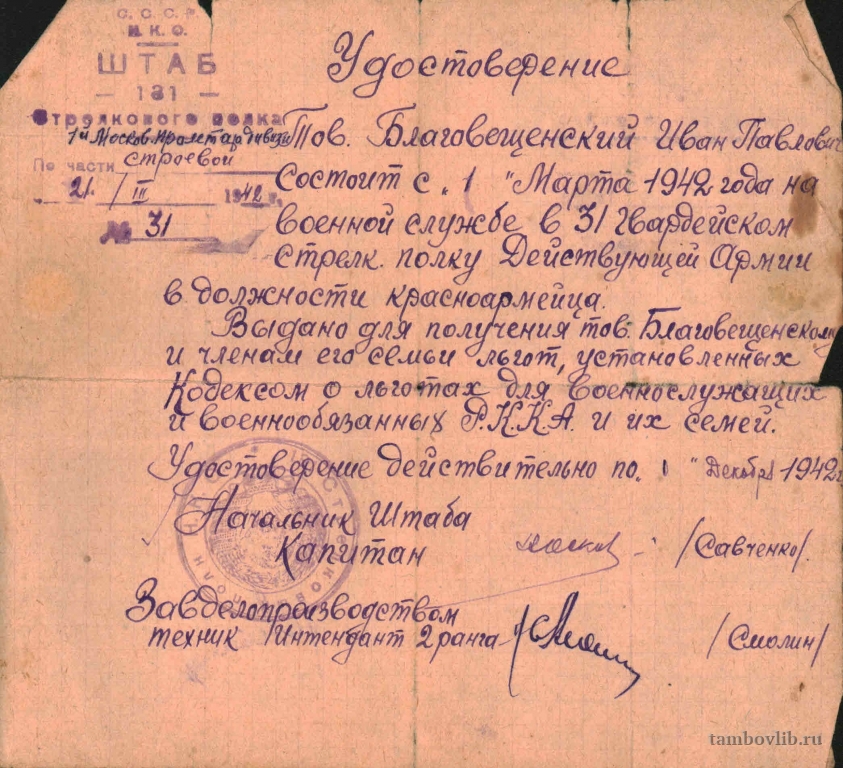 С. С. С. Р.
Н. К. О.
ШТАБ
— 131 —
Стрелкового полка
1й Москов. пролетар дивизи
По части строевой
21 / III 1942 г.
№ 31
Удостоверение
Тов. Благовещенский Иван Павлович
Состоит с „1" Марта 1942 года на
военной службе в 31 Гвардейском
стрелк. полку Действующей Армии
в должности красноармейца.
Выдано для получения тов. Благовещенском
и членам его семьи льгот, установленных
Кодексом о льготах для военнослужащих
и военнообязанных Р.К.К.А. и их семей.
Удостоверение действительно по „1" Декабря 1942 г
Начальник Штаба
Капитан /Савченко/.
Завделопроизводством
техник Интендант 2 ранга - /Смолин/
tambovlib.ru